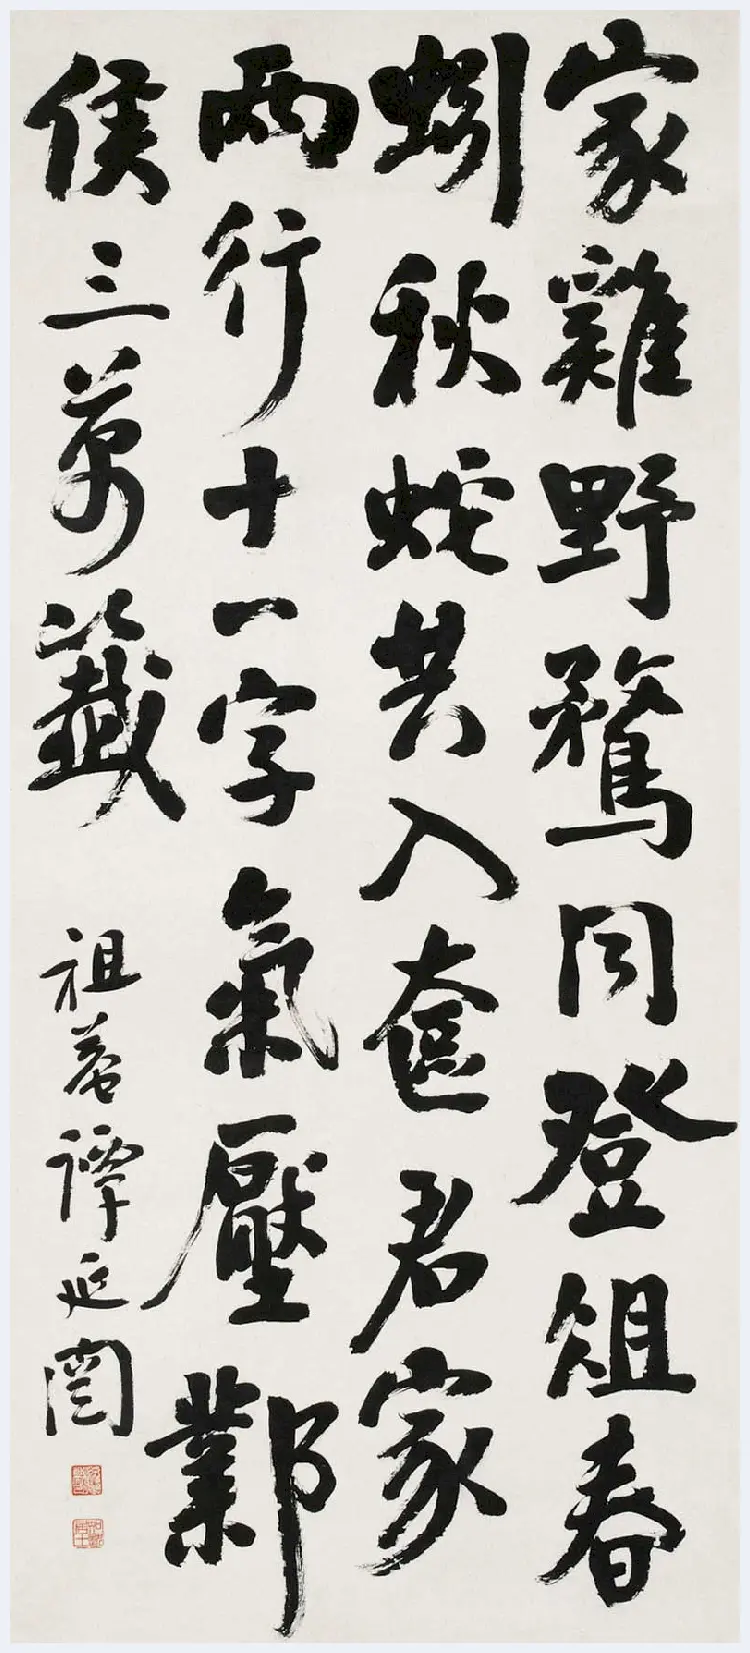 家雞野鶩同登俎春
蚓秋蛇共入奩君家
兩行十一字氣壓鄴
侯三萬籤
祖菴譚延闓